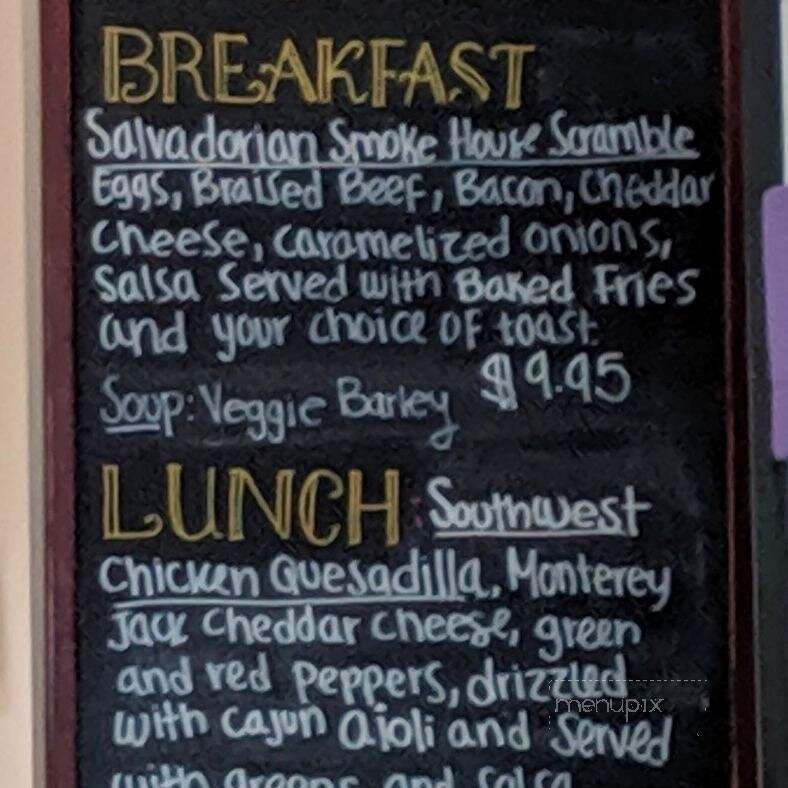 BREAKFAST
Salvadorian Smoke House Scramble
Eggs, Braised Beef, Bacon, Cheddar
Cheese, caramelized onions,
Salsa Served with Baked Fries
and your choice of toast
$9.95
Soup: Veggie Barley
LUNCH: Southwest
Chicken Quesadilla, Monterey
Jack Cheddar cheese, green
and red peppers, drizzled
with cajun aioli and served
with greens and salsa
menupix